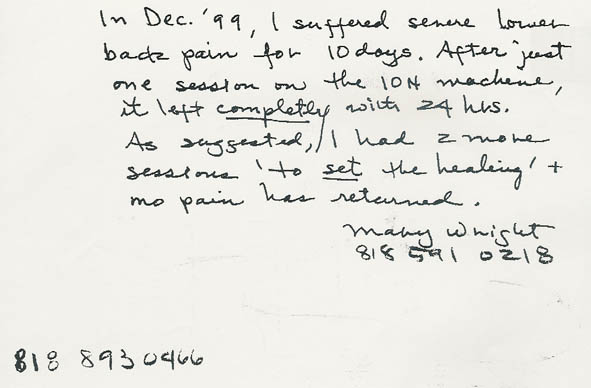 In Dec. '99, I suffered severe lower
back pain for 10 days. After just
one session on the ION machene,
it left completely with 24 hrs.
As suggested, I had 2 more
sessions 'to set the healing' +
no pain has returned.
Mary Wright
818 591 0218
818 893 0466